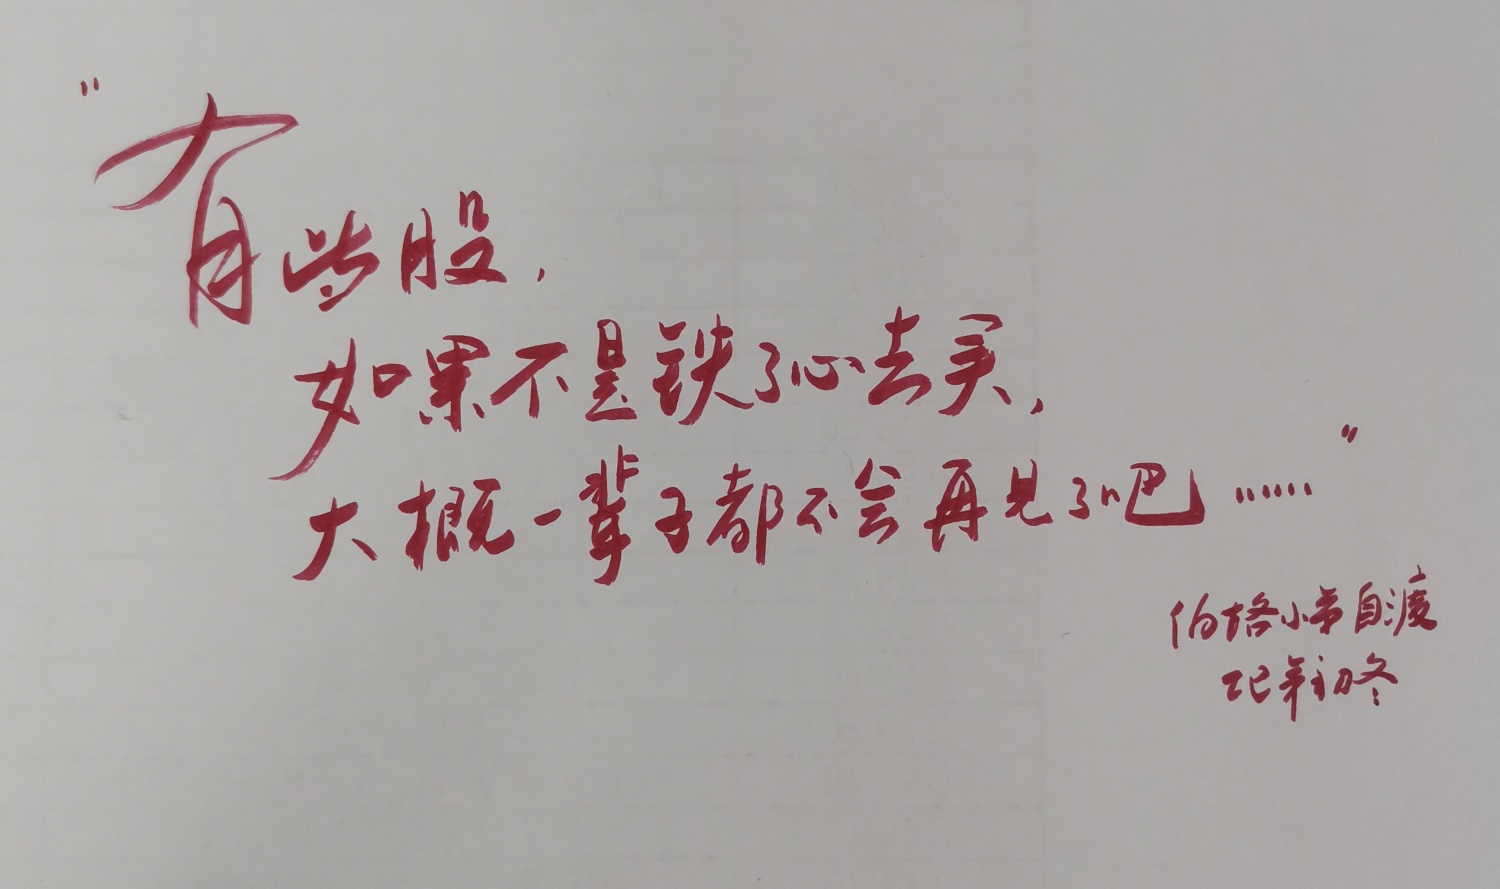 "有些股，
如果不是铁了心去买，
大概一辈子都不会再见了吧……"
伯格小弟自渡
己年初冬